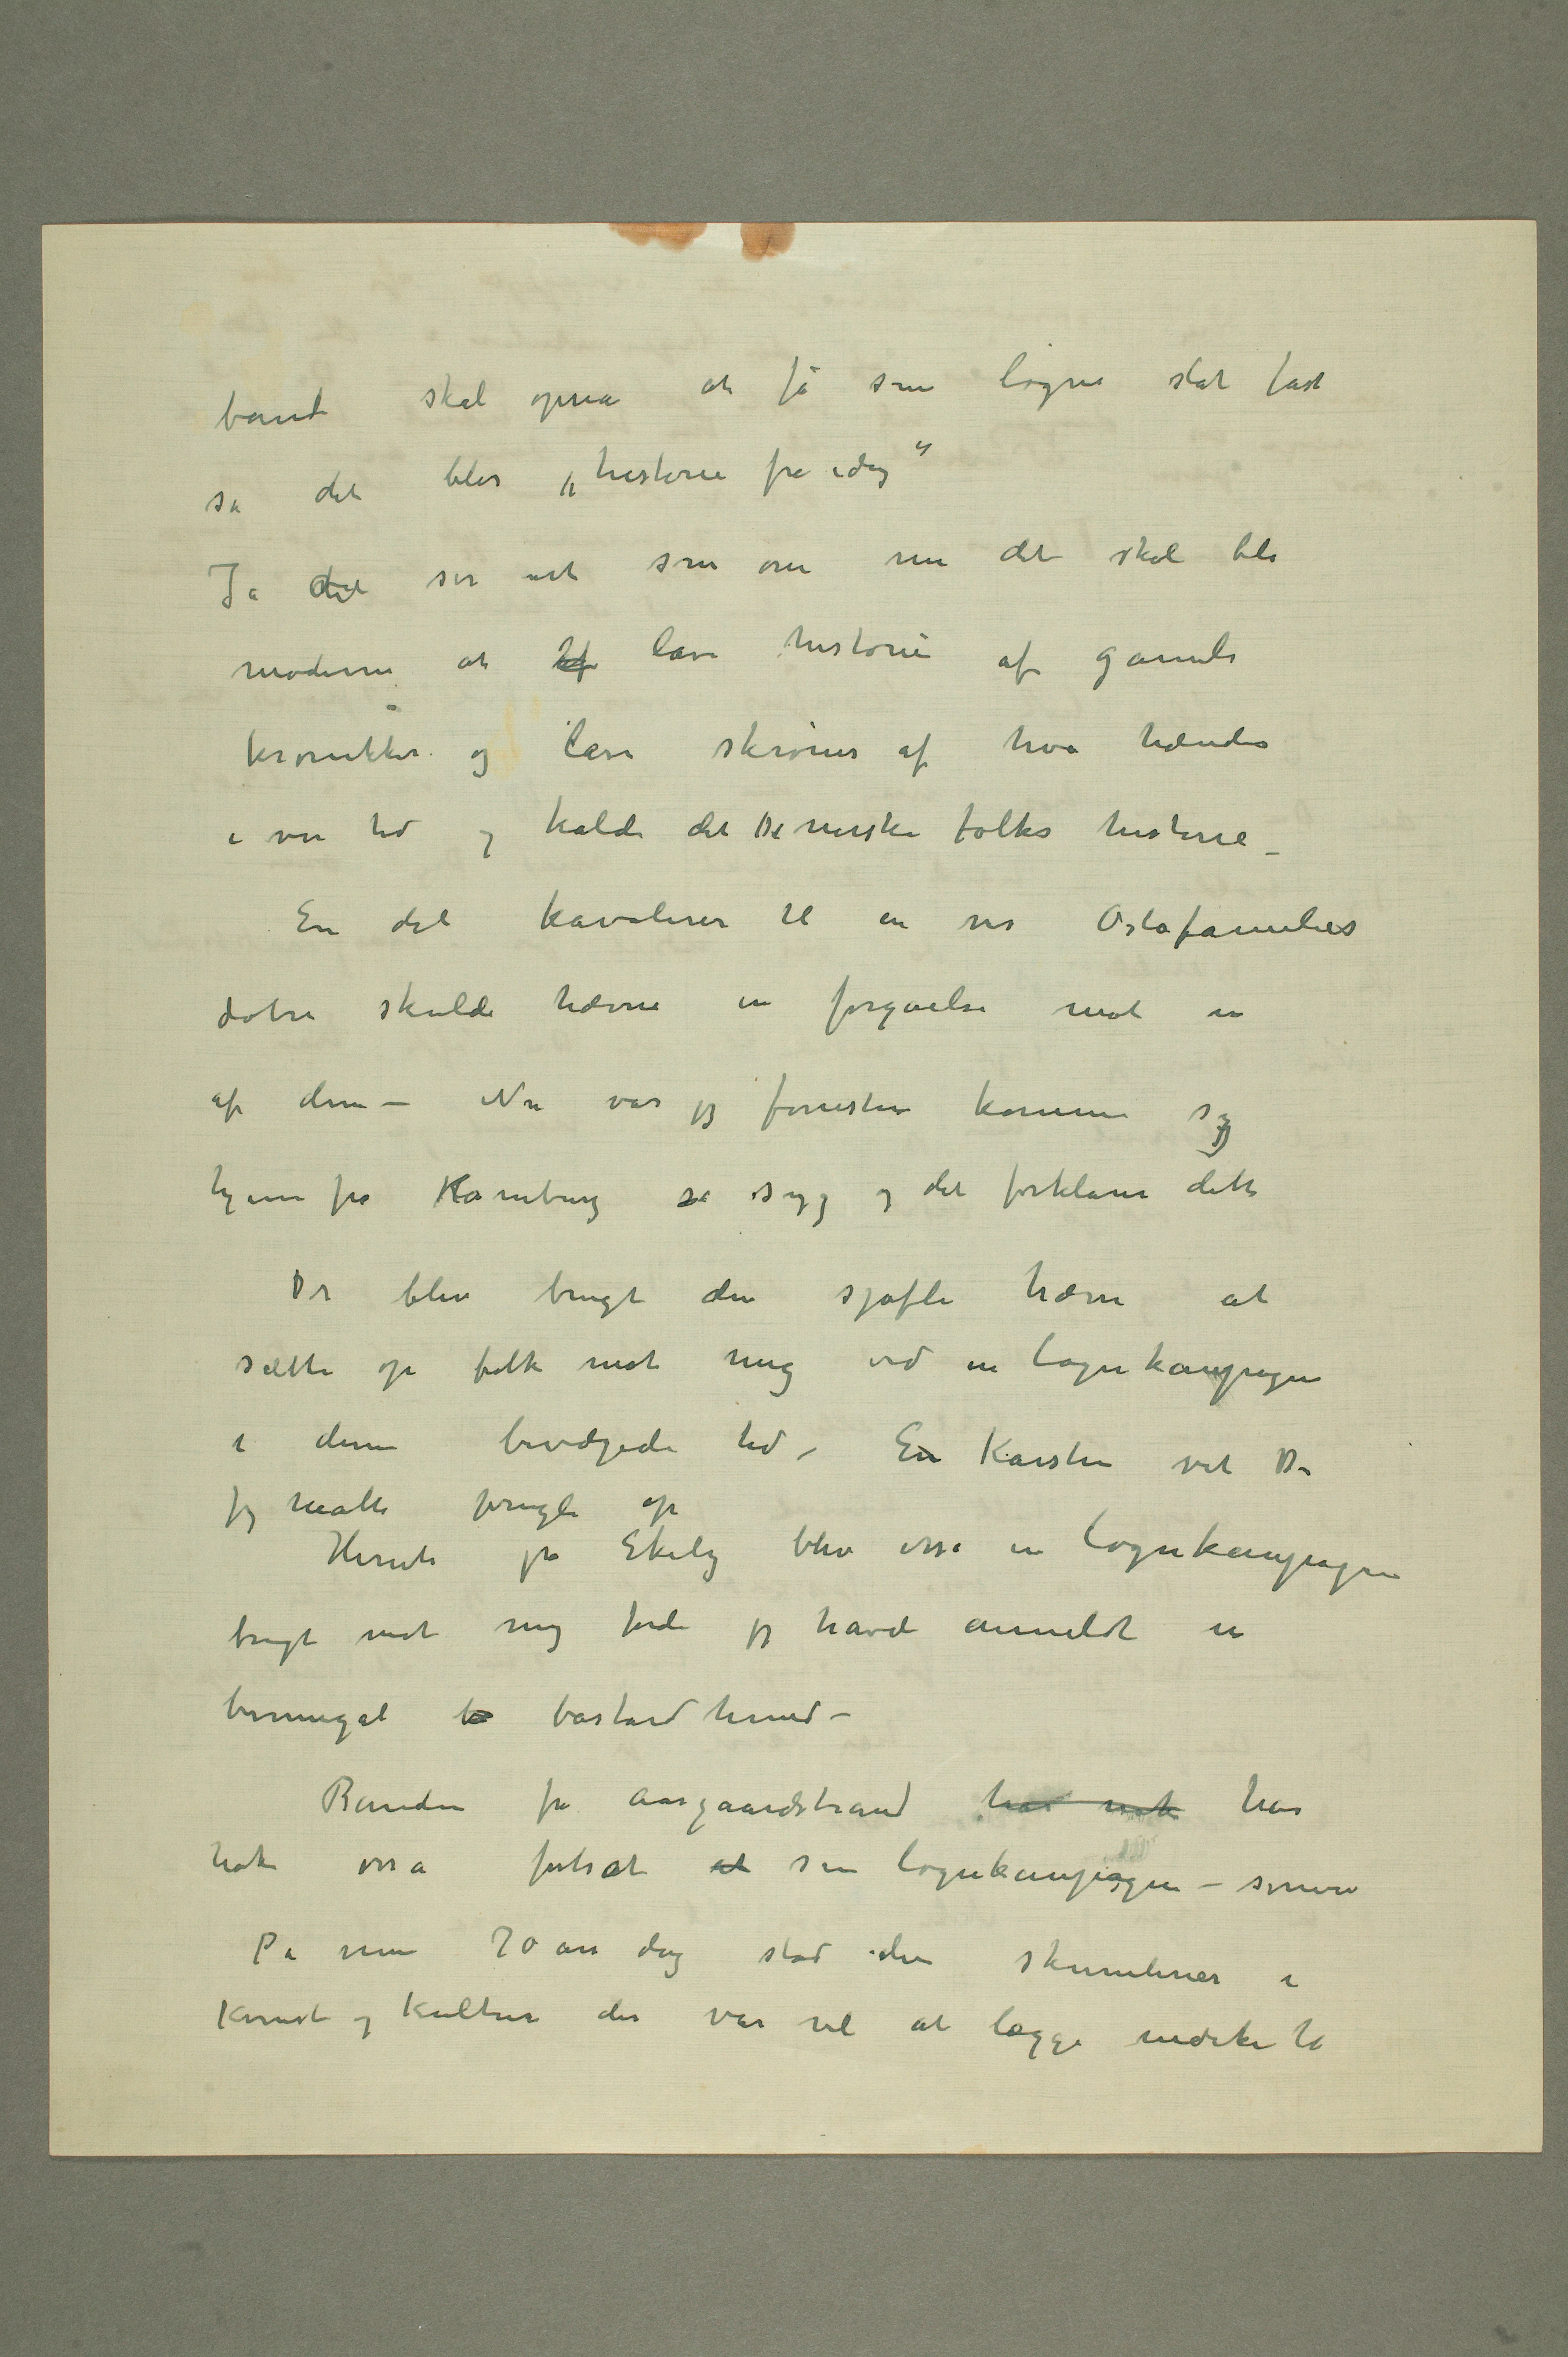 band skal opnaa at få sine løgne slåt fast
så det blir „historie fra idag“
Ja det ser ut som om nu det skal bli
moderne at lave historie af gamle
krøniker og lave skrøner af hva hændes
i vor tid og kalde det De norske folks historie –
En del kavalerer til en vis Oslofamilies
døtre skulde hævne en forgåelse mot en
af dem – Nu var jeg forresten kommen syg
hjem fra Hamburg så syg og det forklarer dette
Der blev brugt den sjofle hævn at
sætte op folk mot mig ved en løgnkampagne
i denne bevægede tid – En Karsten vet De
jeg måtte prygle op
Herute på Ekely blev osså en løgnkampagne
brugt mot mig fordi jeg havde anmeldt en
binnegal bastardhund –
Banden fra Aasgaardstrand har nok har
nok osså fortsat at sin løgnkampagne – senere
På min 70 års dag stod den skumlerier i
Kunst og Kultur der var vel at lægge mærke til